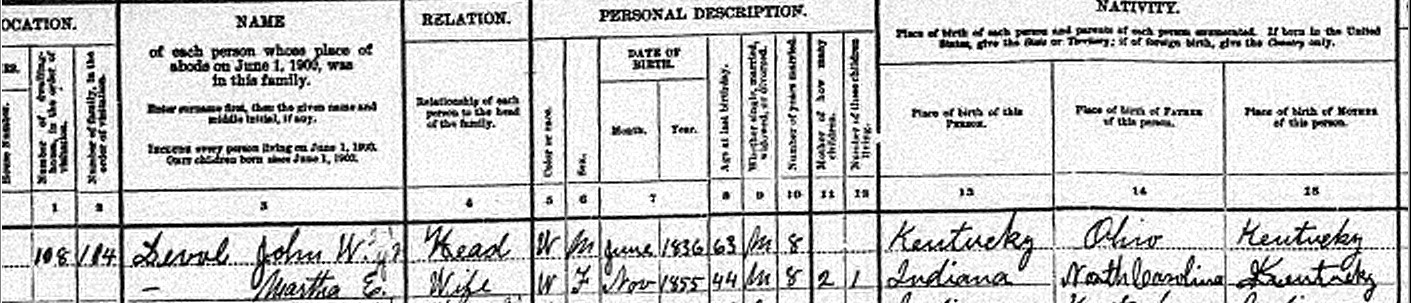 OCATION. NAME RELATION. PERSONAL DESCRIPTION. NATIVITY.
of each person whose place of
abode on June 1, 1900, was
in this family.
Enter surname first, then the given name and
middle initial, if any.
INCLUDE every person living on June 1, 1900.
OMIT children born since June 1, 1900.
Relationship of each
person to the head
of the family.
House Number.
Number of dwelling-
house, in the order of
visitation.
Number of family, in the
order of visitation.
Color or race.
Sex.
DATE OF
BIRTH.
Month. Year.
Age at last birthday.
Whether single, married,
widowed, or divorced.
Number of years married.
Mother of how many
children.
Number of these children
living.
Place of birth of each person and parents of each person enumerated. If born in the United
States, give the State or Territory; if of foreign birth, give the Country only.
Place of birth of this
PERSON.
Place of birth of FATHER
of this person.
Place of birth of MOTHER
of this person.
1 2 3 4 5 6 7 8 9 10 11 12 13 14 15
108 104 Deval John W. Head W M June 1836 63 M 8 Kentucky Ohio Kentucky
— Martha E. Wife W F Nov 1855 44 M 8 2 1 Indiana North Carolina Kentucky